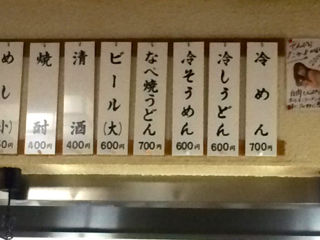 冷めん
700円
冷しうどん
600円
冷そうめん
600円
なべ焼うどん
700円
ビール(大)
600円
清酒
400円
焼酎
400円
めし(小)